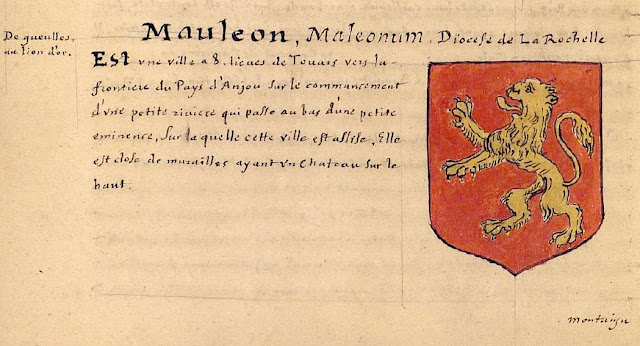 De gueulles,
au lion d'or.
Mauleon, Maleonum, Diocese de La Rochelle
Est vne ville a 8. lieues de Touars vers la
frontiere du Pays d'Anjou sur le commancement
d'vne petite riviere qui passe au bas d'une petite
eminence, sur la quelle cette ville est assise. Elle
est close de murailles ayant vn Chateau sur le
haut.